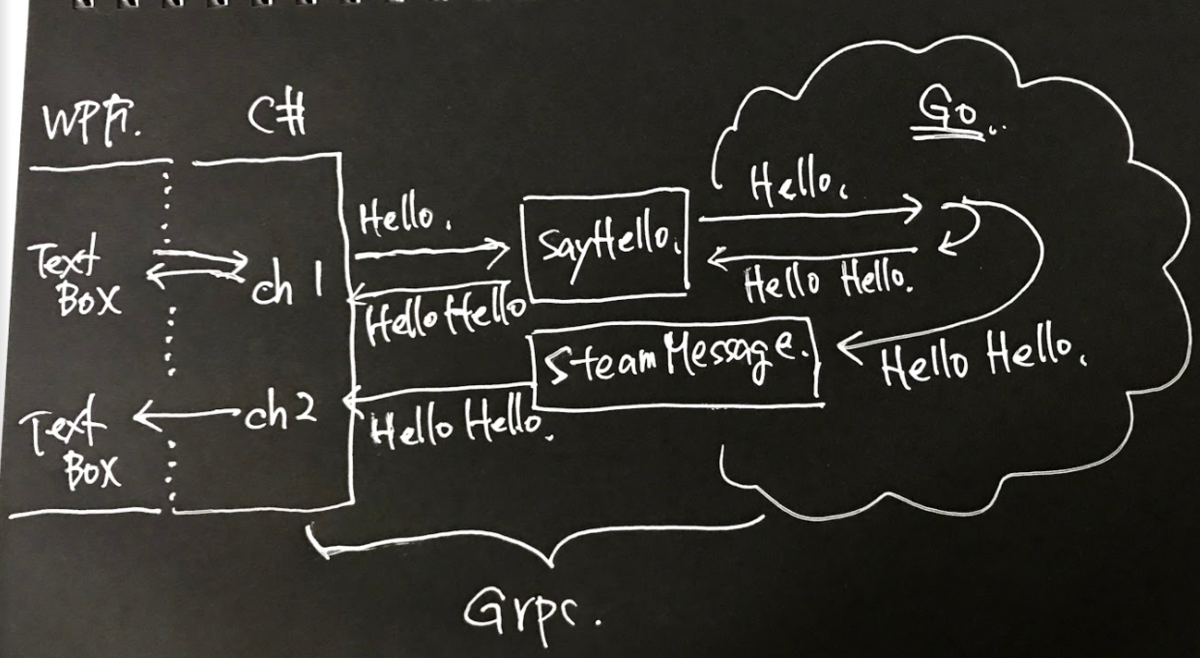 WPF.
C#
Go..
Hello.
Hello.
SayHello.
Text
Box
ch 1
Hello Hello
Hello Hello.
SteamMessage.
Hello Hello.
Text
Box
ch 2
Hello Hello.
Grpc.